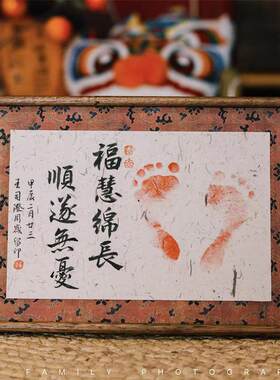 福慧綿長
順遂無憂
甲辰二月廿三
王司澄周歲留印
FAMILY PHOTOGRA